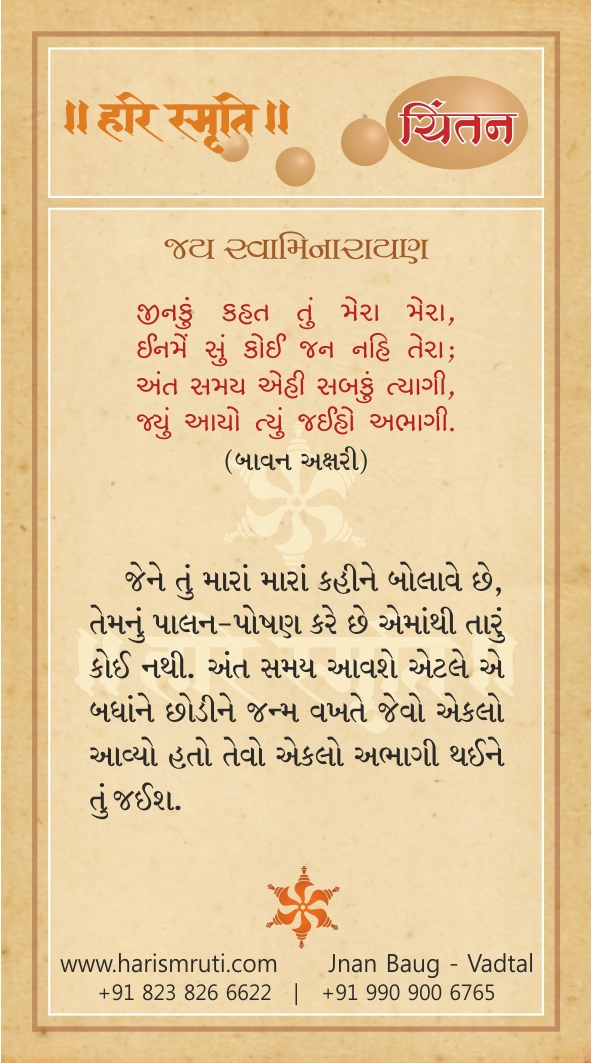 ॥ हरि स्मृति ॥
ચિંતન
જય સ્વામિનારાયણ
જીનકું કહત તું મેરા મેરા,
ઈનમેં સું કોઈ જન નહિ તેરા;
અંત સમય એહી સબકું ત્યાગી,
જ્યું આયો ત્યું જઈહો અભાગી.
(બાવન અક્ષરી)
જેને તું મારાં મારાં કહીને બોલાવે છે,
તેમનું પાલન-પોષણ કરે છે એમાંથી તારું
કોઈ નથી. અંત સમય આવશે એટલે એ
બધાંને છોડીને જન્મ વખતે જેવો એકલો
આવ્યો હતો તેવો એકલો અભાગી થઈને
તું જઈશ.
www.harismruti.com Jnan Baug - Vadtal
+91 823 826 6622 | +91 990 900 6765